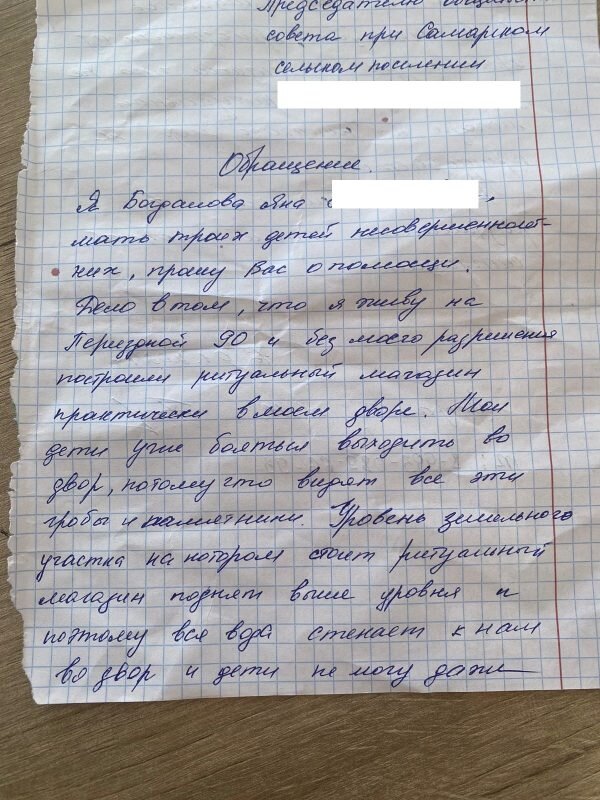 Председателю общ
совета при Самарском
сельском поселении
Обращение.
Я Богдалова Яна
мать троих детей несовершеннолет-
них, прошу Вас о помощи.
Дело в том, что я живу на
Переездной 90 и без моего разрешения
построили ритуальный магазин
практически в моем дворе. Мои
дети уже бояться выходить во
двор, потому что видят все эти
гробы и памятники. Уровень земельного
участка на котором стоит ритуальный
магазин поднят выше уровня и
поэтому вся вода стекает к нам
во двор и дети не могу даже